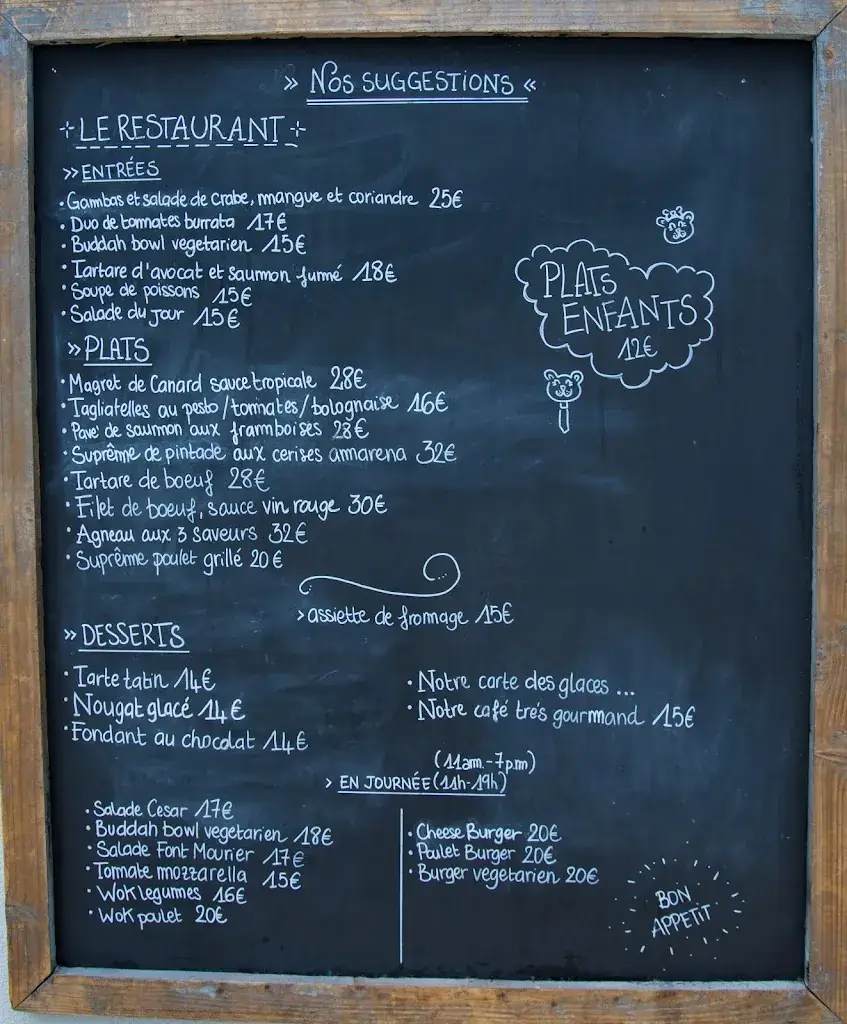 » Nos SUGGESTIONS «
LE RESTAURANT
» ENTRÉES
• Gambas et salade de crabe, mangue et coriandre 25€
• Duo de tomates burrata 17€
• Buddah bowl vegetarien 15€
• Tartare d'avocat et saumon fumé 18€
• Soupe de poissons 15€
• Salade du jour 15€
PLATS
ENFANTS
12€
» PLATS
• Magret de Canard sauce tropicale 28€
• Tagliatelles au pesto/tomates/bolognaise 16€
• Pavé de saumon aux framboises 28€
• Suprême de pintade aux cerises amarena 32€
• Tartare de boeuf 28€
• Filet de boeuf, sauce vin rouge 30€
• Agneau aux 3 saveurs 32€
• Suprême poulet grillé 20€
> assiette de fromage 15€
» DESSERTS
• Tarte tatin 14€
• Nougat glacé 14€
• Fondant au chocolat 14€
• Notre carte des glaces ...
• Notre café trés gourmand 15€
(11am.-7p.m)
> EN JOURNÉE (11h-19h)
• Salade Cesar 17€
• Buddah bowl vegetarien 18€
• Salade Font Mourier 17€
• Tomate mozzarella 15€
• Wok legumes 16€
• Wok poulet 20€
• Cheese Burger 20€
• Poulet Burger 20€
• Burger vegetarien 20€
BON
APPETIT